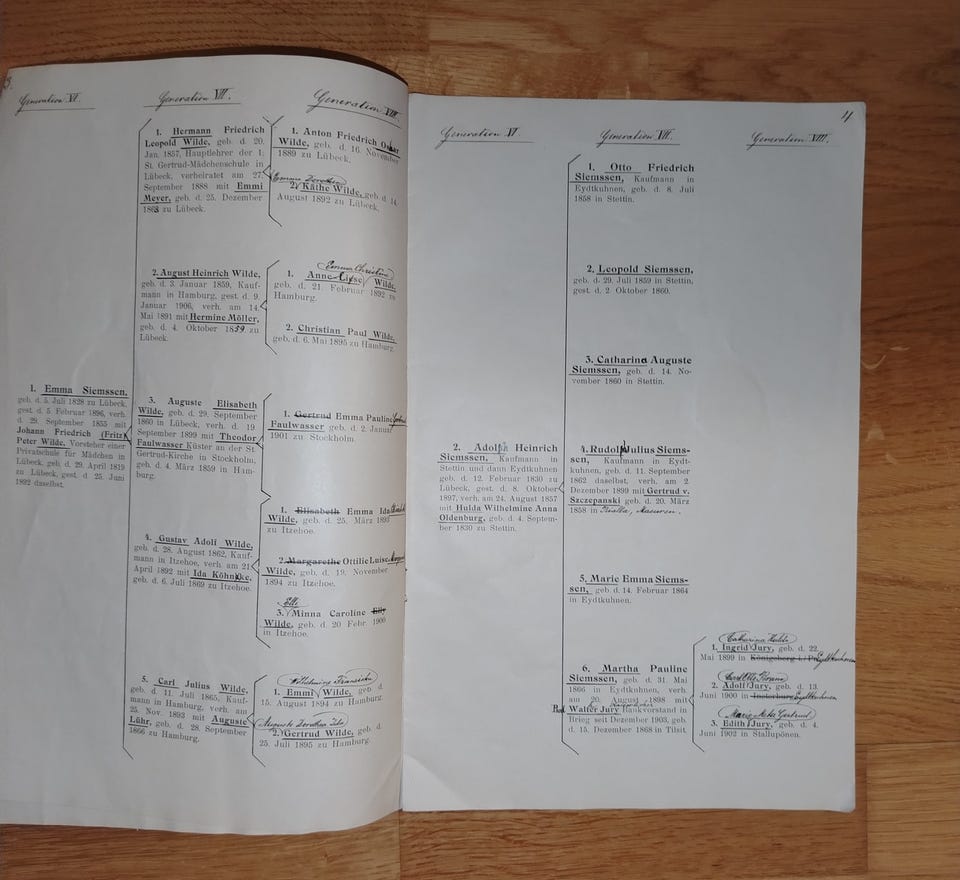 Generation VI.
Generation VII.
Generation VIII.
1. Emma Siemssen,
geb. d. 5. Juli 1828 zu Lübeck,
gest. d. 5. Februar 1896, verh.
d. 29. September 1855 mit
Johann Friedrich (Fritz)
Peter Wilde, Vorsteher einer
Privatschule für Mädchen in
Lübeck, geb. d. 29. April 1819
zu Lübeck, gest. d. 25. Juni
1892 daselbst.
1. Hermann Friedrich
Leopold Wilde, geb. d. 20.
Jan. 1857, Hauptlehrer der 1.
St. Gertrud-Mädchenschule in
Lübeck, verheiratet am 27.
September 1888 mit Emmi
Meyer, geb. d. 25. Dezember
1868 zu Lübeck.
2. August Heinrich Wilde,
geb. d. 3. Januar 1859, Kauf-
mann in Hamburg, gest. d. 9.
Januar 1906, verh. am 14.
Mai 1891 mit Hermine Möller,
geb. d. 4. Oktober 1859 zu
Lübeck.
3. Auguste Elisabeth
Wilde, geb. d. 29. September
1860 in Lübeck, verh. d. 19.
September 1899 mit Theodor
Faulwasser Küster an der St.
Gertrud-Kirche in Stockholm,
geb. d. 4. März 1859 in Ham-
burg.
4. Gustav Adolf Wilde,
geb. d. 28. August 1862, Kauf-
mann in Itzehoe, verh. am 21.
April 1892 mit Ida Köhnkke,
geb. d. 6. Juli 1869 zu Itzehoe.
5. Carl Julius Wilde,
geb. d. 11. Juli 1865, Kauf-
mann in Hamburg, verh. am
25. Nov 1893 mit Auguste
Lühr, geb. d. 28. September
1866 zu Hamburg.
1. Anton Friedrich Oskar
Wilde, geb. d. 16. November
1889 zu Lübeck.
Emma Dorothea
2. Käthe Wilde, geb. d. 14.
August 1892 zu Lübeck.
Emma Christine
1. Anne Liese Wilde,
geb. d. 21. Februar 1892 zu
Hamburg.
2. Christian Paul Wilde,
geb. d. 6. Mai 1895 zu Hamburg.
1. Gertrud Emma Pauline Gertrud
Faulwasser geb. d. 2. Januar
1901 zu Stockholm.
1. Elisabeth Emma Ida
Wilde, geb. d. 25. März 1893
zu Itzehoe.
2. Margarethe Ottilie Luise
Wilde, geb. d. 19. November
1894 zu Itzehoe.
Elli
3. Minna Caroline Elly
Wilde, geb. d. 20 Febr. 1900
in Itzehoe.
Wilhelmine Franziska
1. Emmi Wilde, geb. d.
15. August 1894 zu Hamburg.
Auguste Dorothea Ida
2. Gertrud Wilde, geb. d.
25. Juli 1895 zu Hamburg.
4
Generation VI.
Generation VII.
Generation VIII.
2. Adolph Heinrich
Siemssen, Kaufmann in
Stettin und dann Eydtkuhnen
geb. d. 12. Februar 1830 zu
Lübeck, gest. d. 8. Oktober
1897, verh. am 24. August 1857
mit Hulda Wilhelmine Anna
Oldenburg, geb. d. 4. Septem-
ber 1830 zu Stettin.
1. Otto Friedrich
Siemssen, Kaufmann in
Eydtkuhnen, geb. d. 8. Juli
1858 in Stettin.
2. Leopold Siemssen,
geb. d. 29. Juli 1859 in Stettin,
gest. d. 2. Oktober 1860.
3. Catharina Auguste
Siemssen, geb. d. 14. No-
vember 1860 in Stettin.
4. Rudolf Julius Siems-
sen, Kaufmann in Eydt-
kuhnen, geb. d. 11. September
1862 daselbst, verh. am 2.
Dezember 1899 mit Gertrud v.
Szczepanski geb. d. 20. März
1858 in Bialla, Masuren.
5. Marie Emma Siems-
sen, geb. d. 14. Februar 1864
in Eydtkuhnen.
6. Martha Pauline
Siemssen, geb. d. 31. Mai
1866 in Eydtkuhnen, verh.
am 20. August 1898 mit
Walter Jury Bankvorstand in
Brieg seit Dezember 1903, geb.
d. 15. Dezember 1868 in Tilsit.
Catharina Hulda
1. Ingrid Jury, geb. d. 22.
Mai 1899 in Königsberg i./Pr. Eydtkuhnen
2. Adolf Jury, geb. d. 13.
Juni 1900 in Insterburg Eydtkuhnen
Marie Meta Gertrud
3. Edith Jury, geb. d. 4.
Juni 1902 in Stallupönen.